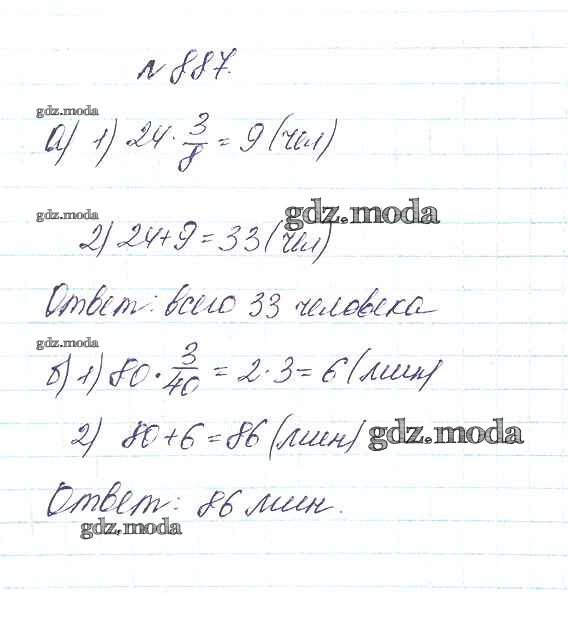 № 887.
gdz.moda
а) 1) 24 · 3/8 = 9 (чел)
gdz.moda
gdz.moda
2) 24 + 9 = 33 (чел)
Ответ: всего 33 человека
gdz.moda
б) 1) 80 · 3/40 = 2 · 3 = 6 (мин)
2) 80 + 6 = 86 (мин)
gdz.moda
Ответ: 86 мин.
gdz.moda